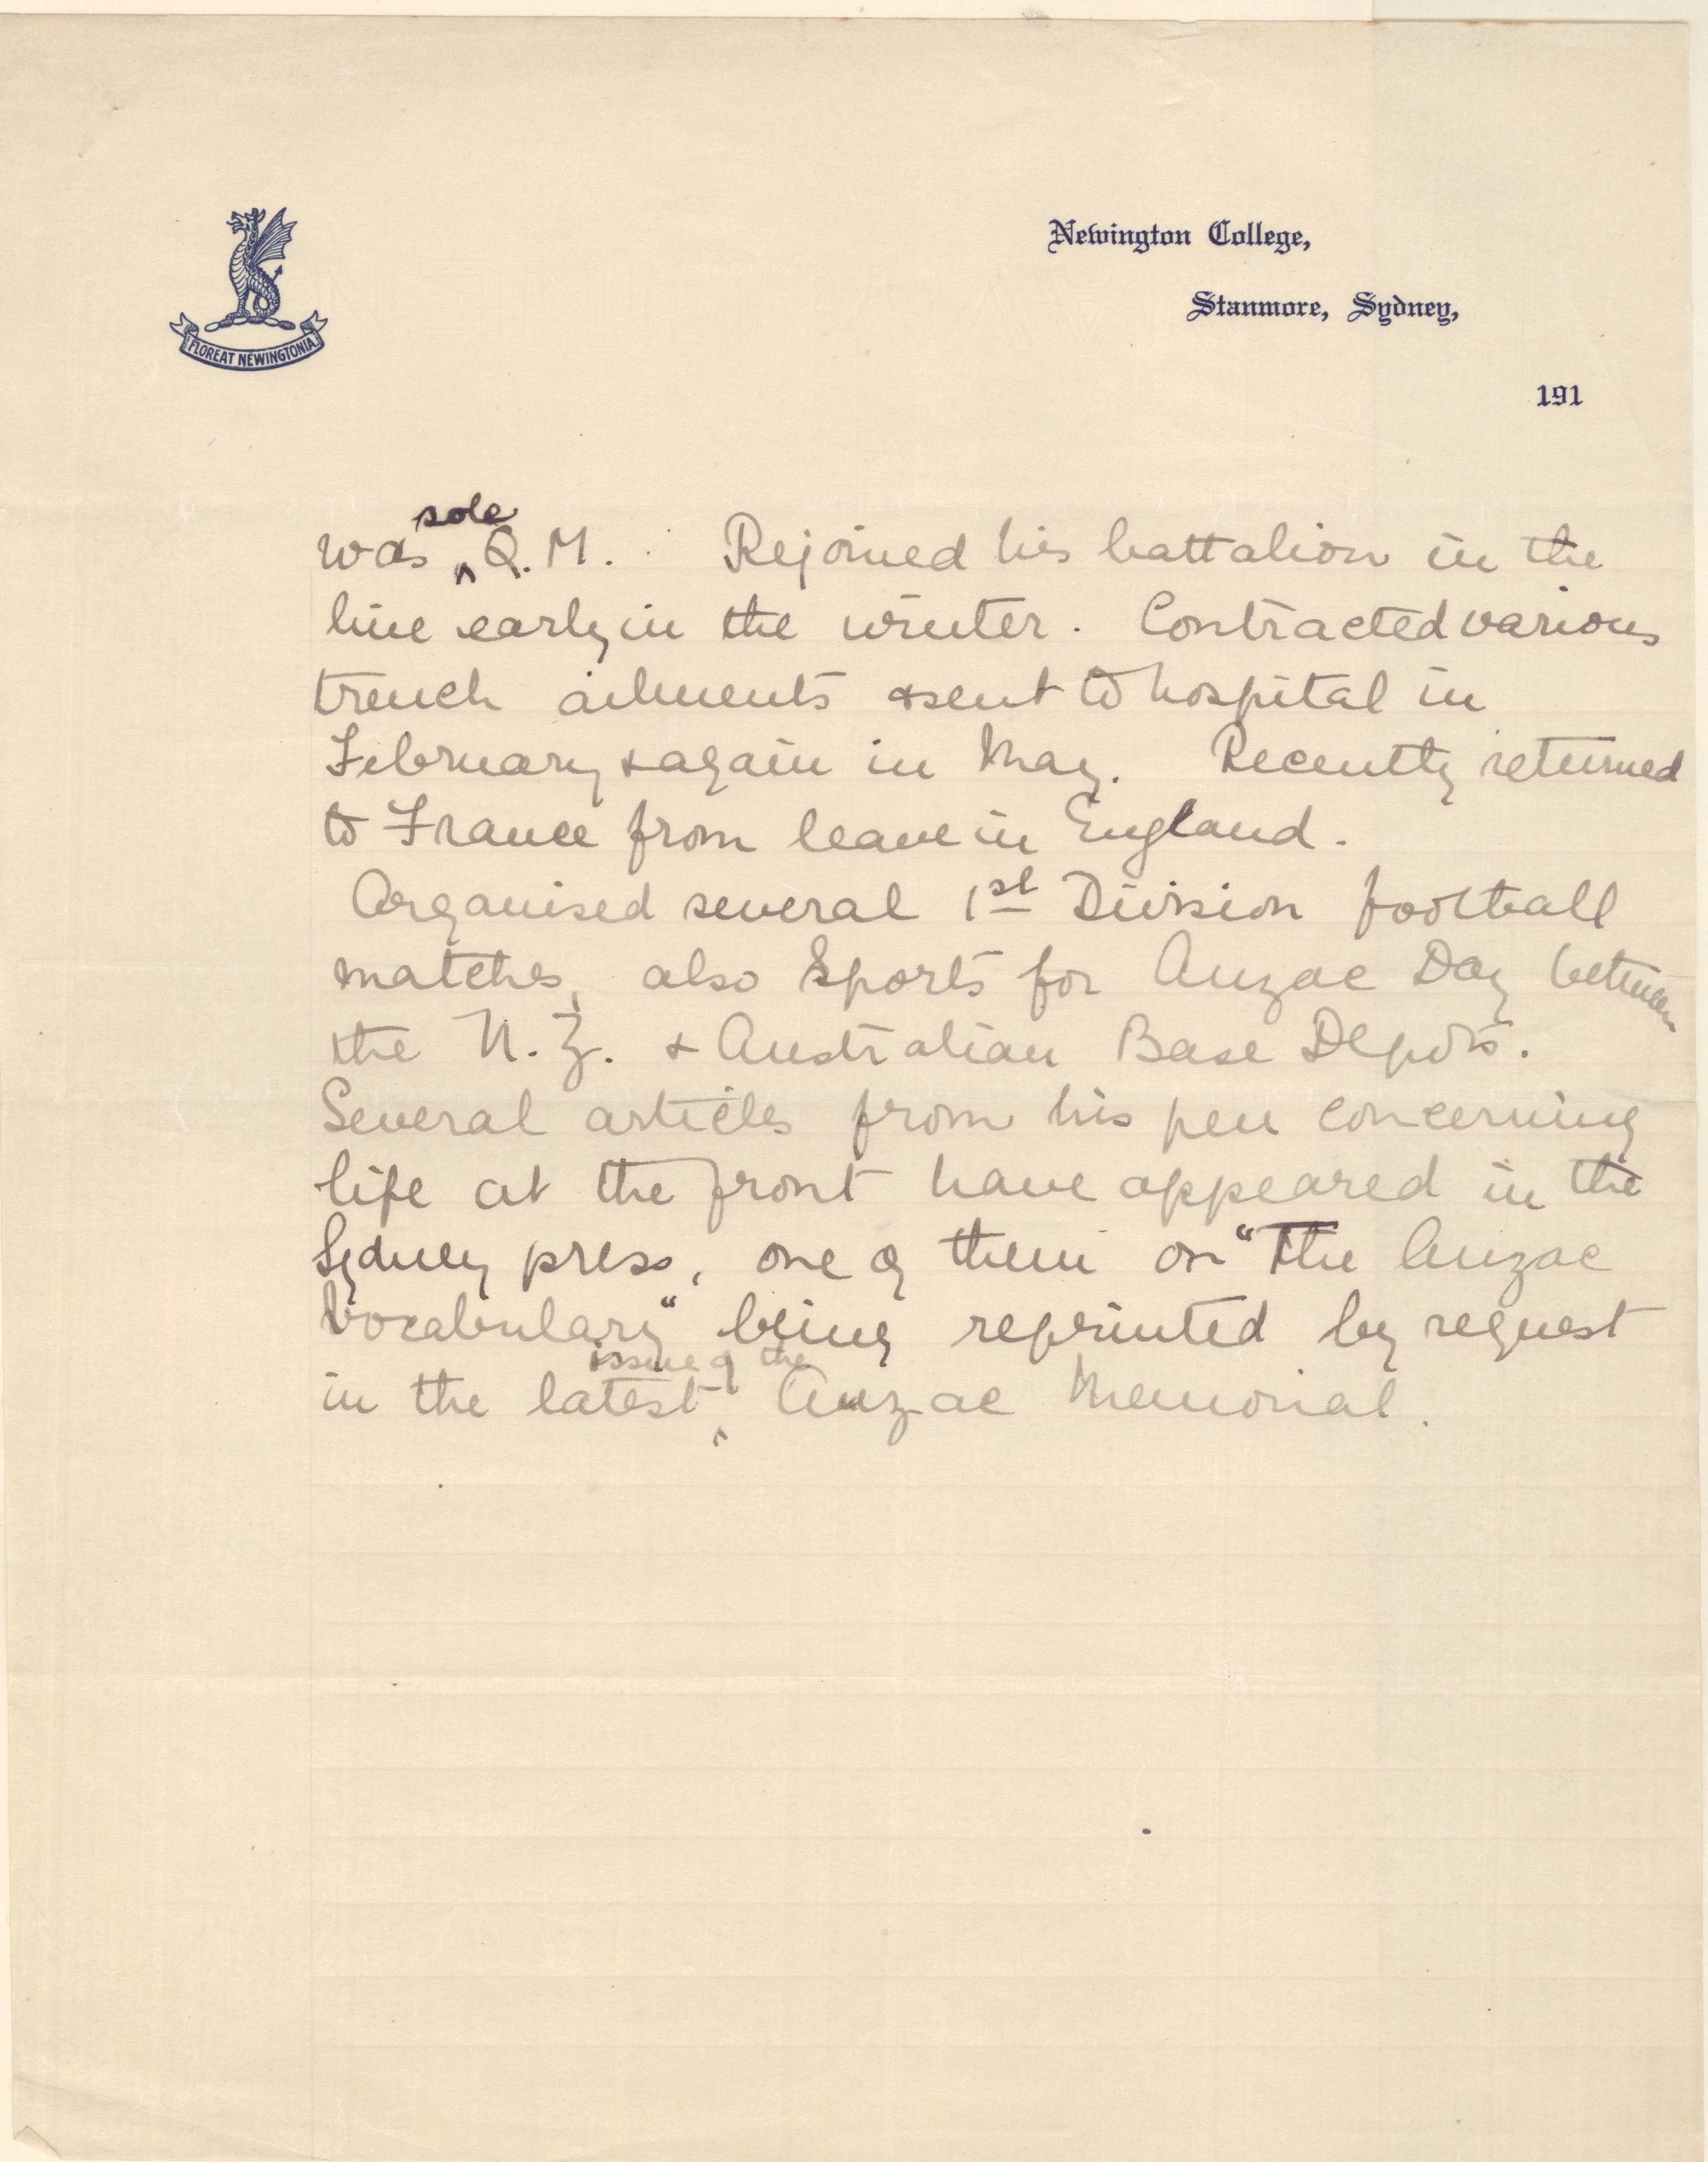 FLOREAT NEWINGTONIA
Newington College,
Stanmore, Sydney,
191
was sole Q.M. Rejoined his battalion in the
line early in the winter. Contracted various
trench ailments & sent to hospital in
February & again in May. Recently returned
to France from leave in England.
Organised several 1st Division football
matches, also Sports for Anzac Day between
the N.Z. & Australian Base Depots.
Several articles from his pen concerning
life at the front have appeared in the
Sydney press, one of them on "The Anzac
Vocabulary" being reprinted by request
in the latest issue of the Anzac Memorial.